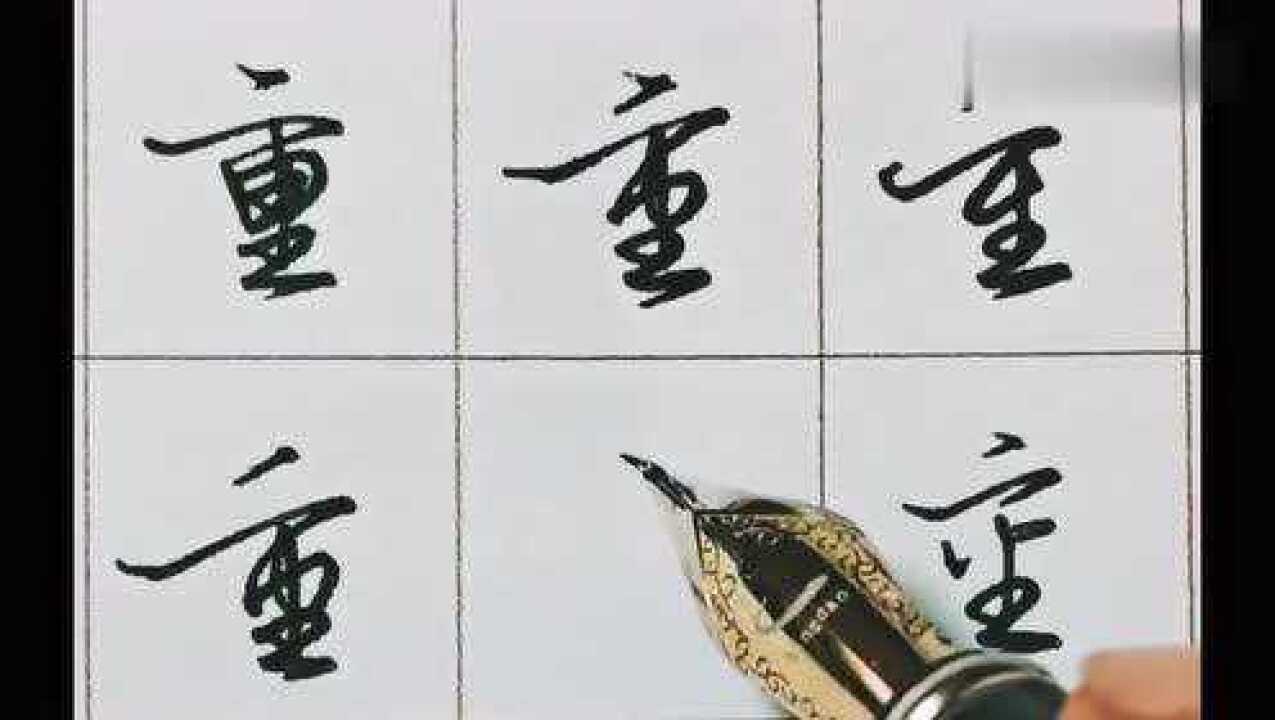 重 重 重
重 重